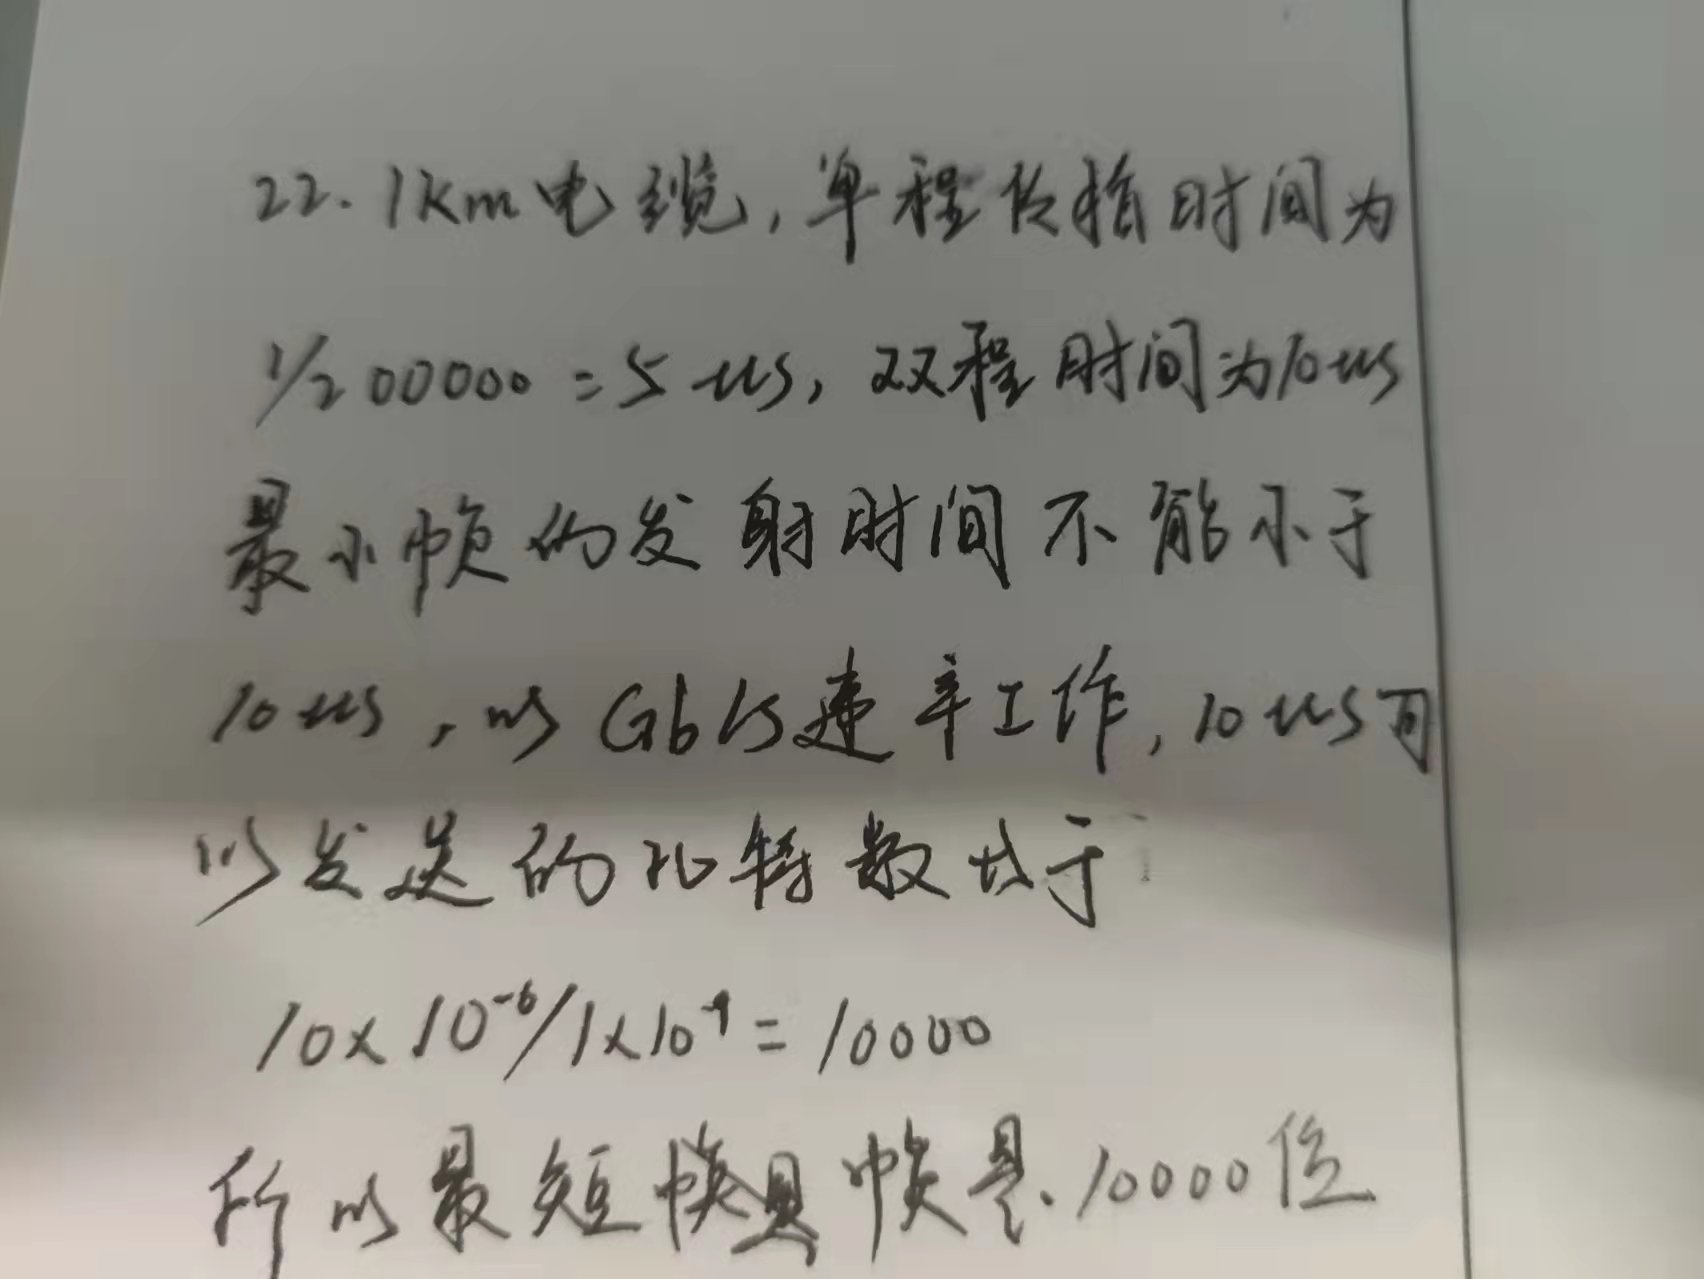 22. 1km电缆,单程传播时间为
1/200000=5us,双程时间为10us
最小帧的发射时间不能小于
10us,以Gb/s速率工作,10us可
以发送的比特数式于
10×10⁻⁶/1×10⁻⁹=10000
所以最短帧是10000位